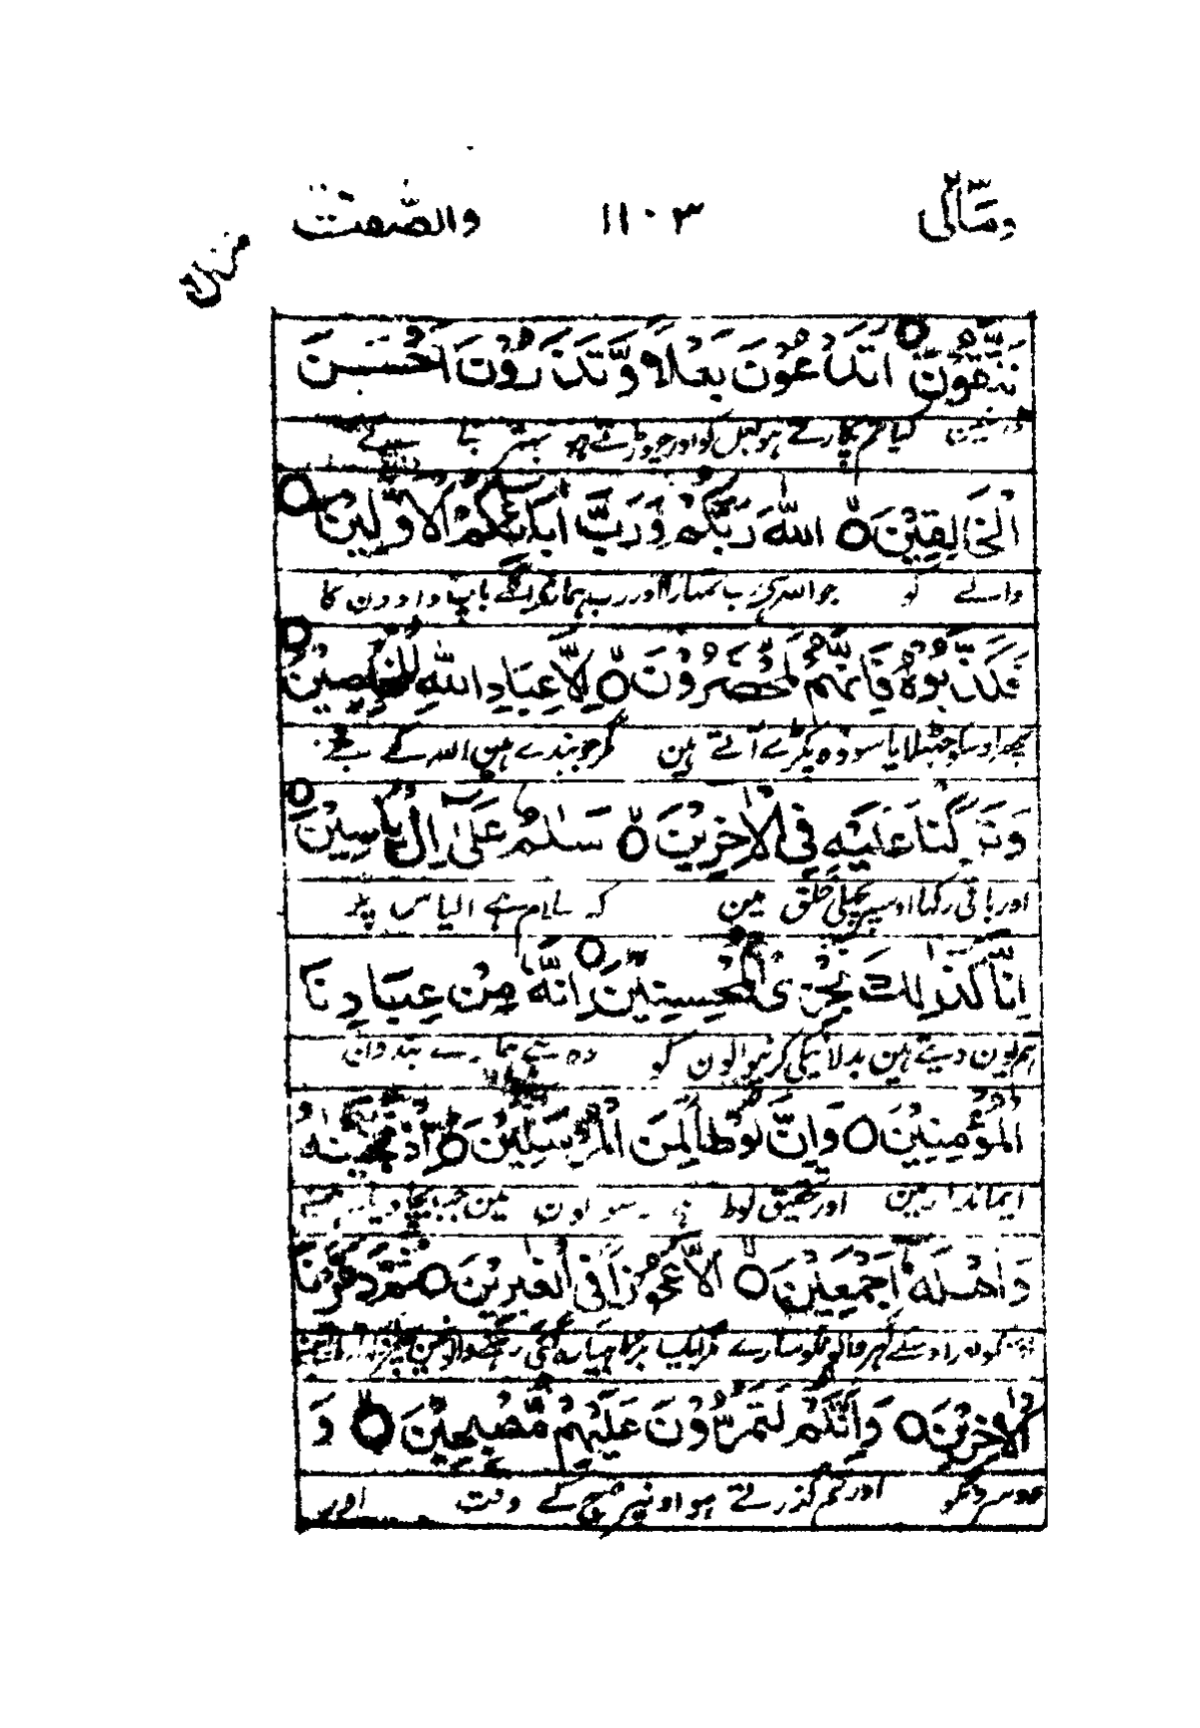 ومآلی ۱۱۰۳ والصّٰفّٰت
منزل
تَتَّقُوْنَ ○ اَتَدْعُوْنَ بَعْلًا وَّتَذَرُوْنَ اَحْسَنَ
کیا تم پکارتے ہو بعل کو اور چھوڑتے ہو بہتر بنانے
الْخَالِقِيْنَ ○ اللّٰهَ رَبَّكُمْ وَرَبَّ اٰبَآئِكُمُ الْاَوَّلِيْنَ ○
والے کو جو اللہ ہے رب تمہارا اور رب تمہارے اگلے باپ دادون کا
فَكَذَّبُوْهُ فَاِنَّهُمْ لَمُحْضَرُوْنَ ○ اِلَّا عِبَادَ اللّٰهِ الْمُخْلَصِيْنَ ○
پھر اوسکو جھٹلایا سو وہ پکڑے آتے ہین مگر جو بندے ہین اللہ کے چنے
وَتَرَكْنَا عَلَيْهِ فِي الْاٰخِرِيْنَ ○ سَلٰمٌ عَلٰٓى اِلْ يَاسِيْنَ ○
اور باقی رکھا اوسپر پچھلی خلق مین کہ سلام ہے الیاس پر
اِنَّا كَذٰلِكَ نَجْزِى الْمُحْسِنِيْنَ ○ اِنَّهٗ مِنْ عِبَادِنَا
ہم یون دیتے ہین بدلا نیکی کرنیوالون کو وہ ہے ہمارے بندون
الْمُؤْمِنِيْنَ ○ وَاِنَّ لُوْطًا لَّمِنَ الْمُرْسَلِيْنَ ○ اِذْ نَجَّيْنٰهُ
ایماندار مین اور تحقیق لوط ہے رسولون مین جب بچا دیا ہمنے
وَاَهْلَهٗٓ اَجْمَعِيْنَ ○ اِلَّا عَجُوْزًا فِى الْغٰبِرِيْنَ ○ ثُمَّ دَمَّرْنَا
اوسکو اور اوسکے گھر والونکو سارے مگر ایک بڑھیا رہ گئی رہنے والون مین پھر
الْاٰخَرِيْنَ ○ وَاِنَّكُمْ لَتَمُرُّوْنَ عَلَيْهِمْ مُّصْبِحِيْنَ ○ وَ
دوسرونکو اور تم گذرتے ہو اونپر صبح کے وقت اور